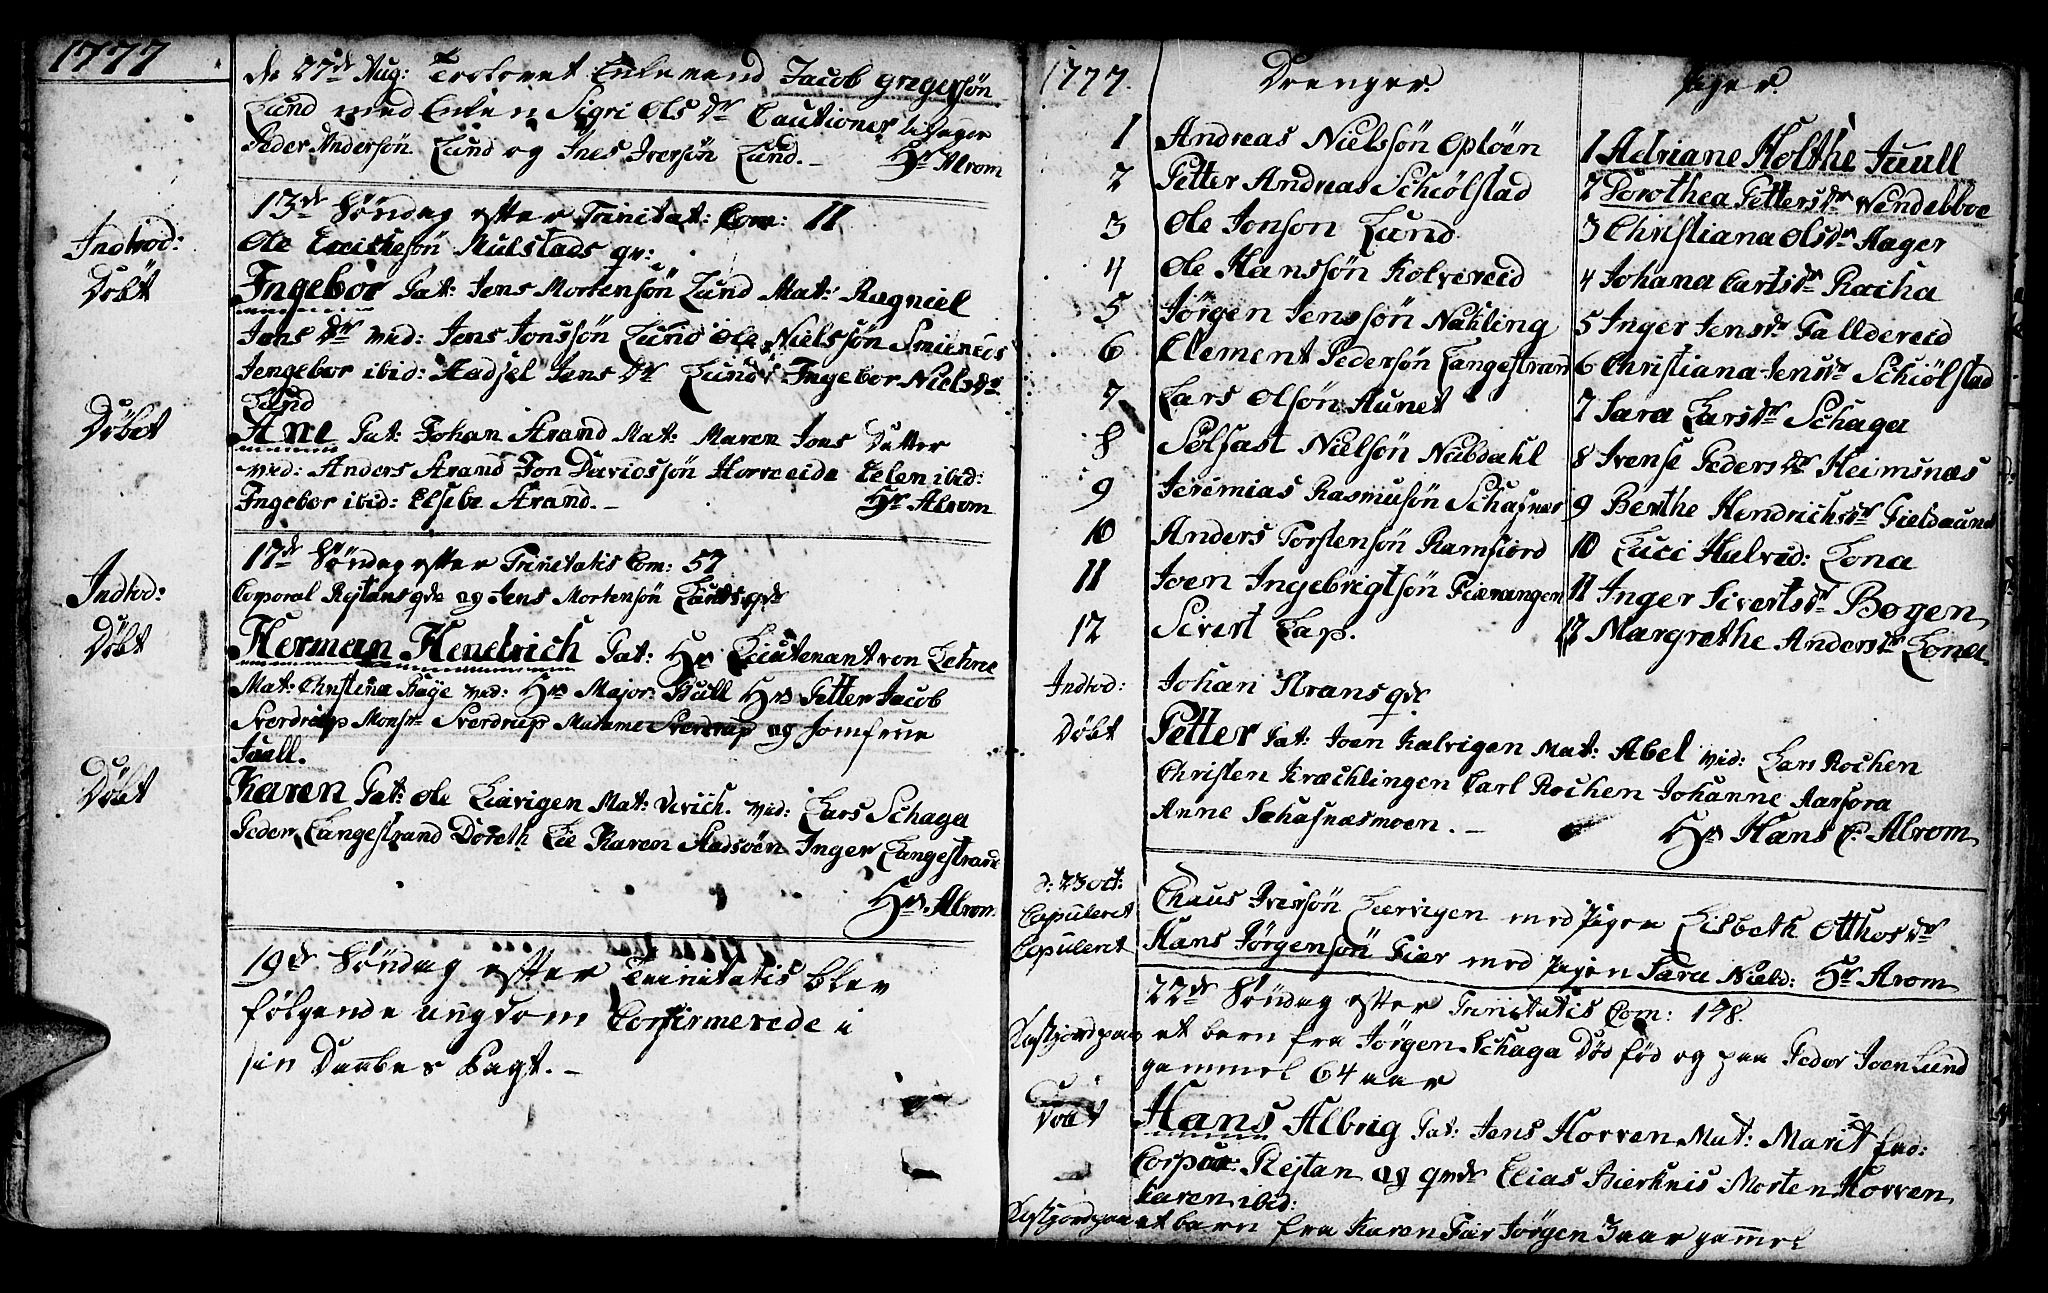 1777
de 27de Aug: Trolovet Enkemand Jacob Gregersøn
Lund med Enken Sigri Ols Dr Cautioner
Peder Andersøn Lund og Jnes Iversøn Lund. – Hr Alrom
13de Søndag efter Trinitat: Com: 11
Indtod: Ole Mulstads qv:
Døbt Ingebor Pat: Jens Mortensøn Lund Mat: Ragniel
Jons Dr vid: Jens Jonssøn Lund Ole Nielssøn
Jengebor ibid: Aadsel Jens Dr Lund Ingebor Niels Dr
Lund
Døbet Ane Pat: Johan Arand Mat: Maren Jons Datter
vid: Anders Arand Jon Davidssøn Horreeide Elen ibid:
Ingebor ibid: Elsebe Arand. – Hr Alrom
17de Søndag efter Trinitatis Com: 57
Indtod: Corporal Rejtans qde og Jens Mortensøn Lunds qde
Døbt Herman Hendrich Pat: Hr Lieutenant von Lehne
Mat: Christina Baÿe vid: Hr Major Hr Petter Jacob
Sverdrup Monsr Sverdrup Madame Sverdrup og Jomfrue
Juull.
Døbt Karen Pat: Ole Leirvigen Mat: vid: Lars Schaga
Peder Langestrand Doreth Lie Karen Aadsøen Inger Langestrand
Hr Alrom
19de Søndag efter Trinitatis blev
følgende ungdom Confirmerede i
sin Daabes Pagt. –
1777. Drenger. Piger.
1 Andreas Nielssøn Opløen
2 Petter Andreas Schiølstad
3 Ole Jonson Lund
4 Ole Hanssøn Kolvereid
5 Jørgen Jenssøn Nakling
6 Clement Pedersøn Langestrand
7 Lars Olsøn Aunet
8 Sølfast Nielsøn Nubdahl
9 Jeremias Rasmusøn Schafnæs
10 Anders Torstensøn Ramfiord
11 Joen Ingebrigtsøn Fiærangen
12 Sivert Lap.
1 Adriane Holthe Juull
2 Dorothea Petters Dr Wendelboe
3 Christiana Ols Dr Aager
4 Johana Carls Dr Rocha
5 Inger Jens Dr Falldereid
6 Christiana Jens Dr Schiølstad
7 Sara Lars Dr Schaga
8 Ivense Peders Dr Heimsnæs
9 Berthe Hendrichs Dr Fieldaune
10 Luci Halvid: Lona
11 Inger Siverts Dr Bogen
12 Margrethe Anders Dr Lona
Indtod: Johan Arans qde
Døbt Petter Pat: Joen Kalvigen Mat: Abel vid: Lars Rochen
Christen Krachlingen Carl Rochen Johanne Aarsora
Anne Schafnæsmoen. – Hr Hans C. Alrom
d: 23 Oct:
Copuleret Claus Iversøn Leervigen med Pigen Lisbeth Otthos Dr
Copuleret Hans Jørgensøn Fier med Pigen Sara Nield: Hr Arom
22de Søndag efter Trinitatis Com: 178.
Kastjordpaa et barn fra Jørgen Schaga Død fød og paa Peder Joen Lund
gammel 64 aar
Døbt Hans Albrig Pat: Jens Horven Mat: Marit Fad:
Corpor: Rejtan og qvde Elias Bierknis Morten Horven
Karen ibid:
Kastjordpaa et barn fra Karen Fair Jørgen 3 aar gammel